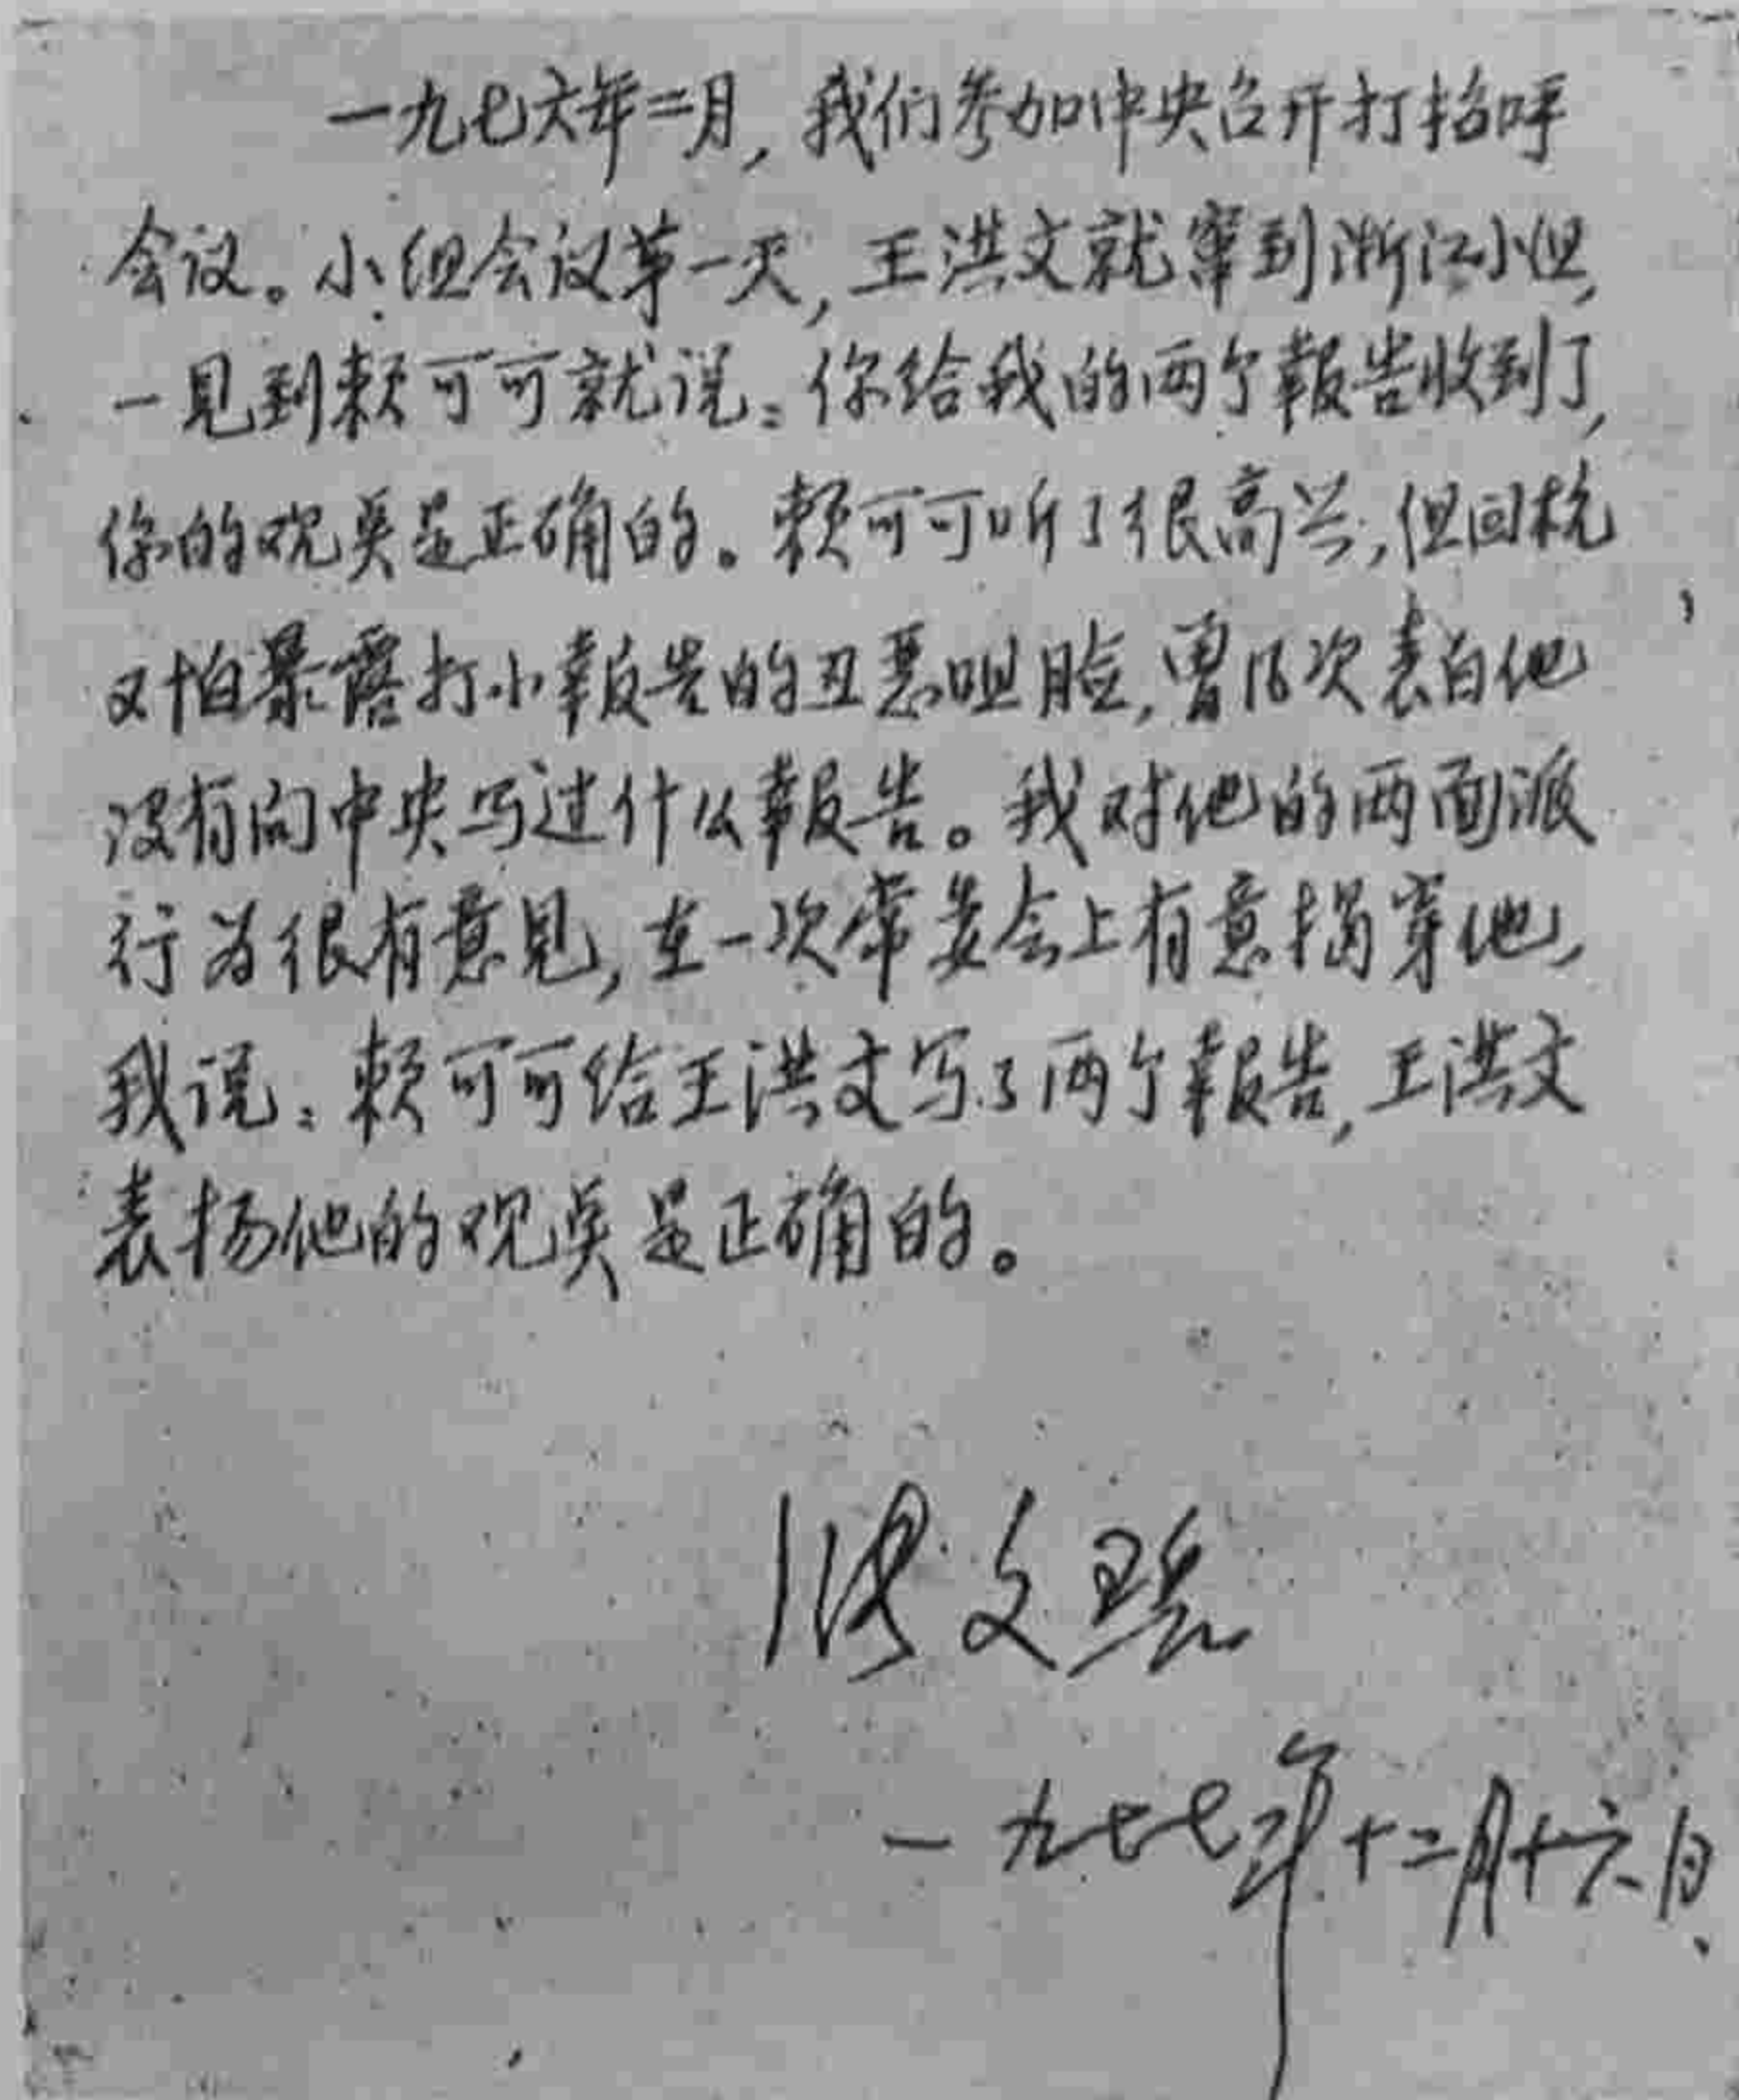 一九七六年二月,我们参加中央召开打招呼
会议。小组会议第一天,王洪文就窜到浙江小组,
一见到赖可可就说:你给我的两个報告收到了,
你的观点是正确的。赖可可听了很高兴,但回杭
又怕暴露打小報告的丑恶咀脸,曾几次表白他
没有向中央写过什么報告。我对他的两面派
行为很有意见,在一次常委会上有意揭穿他,
我说:赖可可给王洪文写了两个報告,王洪文
表扬他的观点是正确的。
文
一九七七年十二月十六日